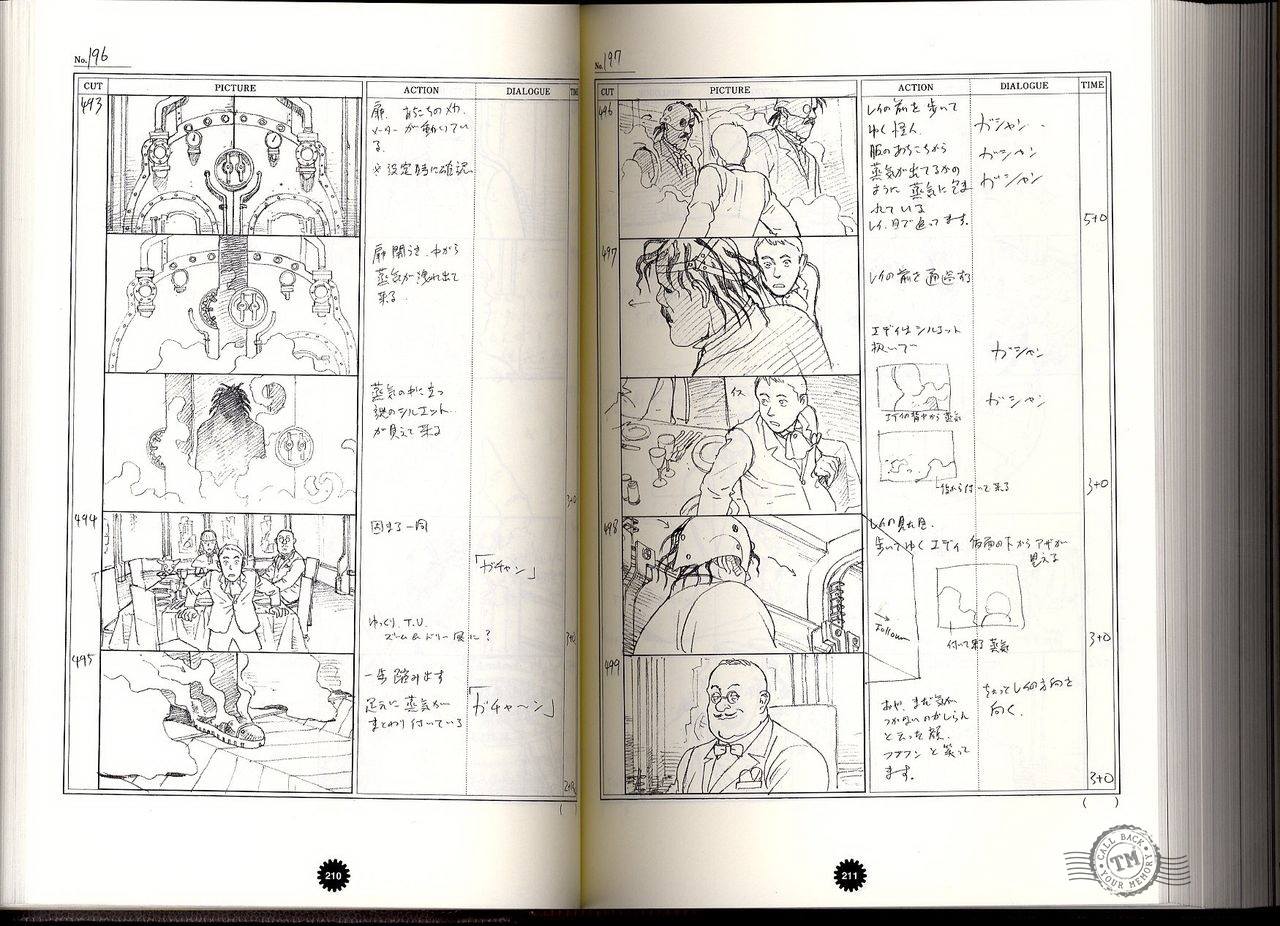 No.196
CUT PICTURE ACTION DIALOGUE
493
扉、あちこちのメカ、
メーターが動いてい
る。
※設定時に確認
扉開らき、中から
蒸気が洩れ出て
来る。
蒸気の中に立つ
のシルエット
が見えて来る
3+0
494
固まる一同
「ガチャン」
ゆっくりT.U.
ズーム&ドリー 風に?
3+0
495
一歩踏み出す
足元に蒸気が
まとわり付いている
「ガチャ〜ン」
210
No.197
CUT PICTURE ACTION DIALOGUE TIME
496
レイの前を歩いて
ゆく怪人。
服のあちこちから
蒸気が出てるかの
ように 蒸気に包ま
れている
レイ、目で追ってます。
ガシャン
ガシャン
ガシャン
5+0
497
レイの前を通過する
エディはシルエット
扱いで
ガシャン
イス
ガシャン
エディの背中から蒸気
後から付いて来る
3+0
498
レイの見た目。
歩いてゆくエディ 仮面の下からアザが
見える
Follow
付いて来る蒸気
3+0
499
おや、まだ気が
つかないのかしらん
と云った顔。
フフフンと笑って
ます。
レイの方向を
向く。
3+0
( )
211
CALL BACK
TM
YOUR MEMORY